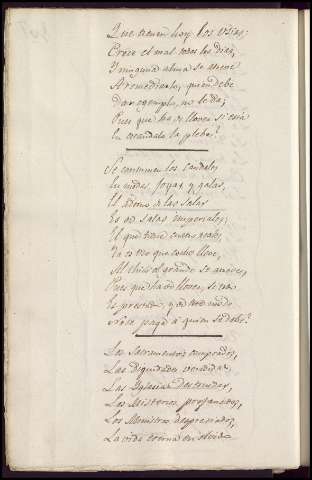 Que tienen hoy los Usias;
Crece el mal todos los dias,
Y ninguna alma se mueve
A remediarlo, quien debe
Dar egemplo, no le da;
Pues que ha de llover si está
En escandalo la plebe?
Se consumen los caudales
En modas, joyas y galas,
El adorno de las salas
Es de salas imperiales;
El que tiene cuatro reales,
Ya es de que coche lleve,
Al chico, al grande se atreve,
Pues que ha de llover, si
Es prestado, y
paga à quien se debe?
Los Sacramentos comprados,
Las Dignidades vendidas
Las Iglesias destruidas,
Los Misterios profanados,
Los Ministros despreciados,
La vida eterna en olvido